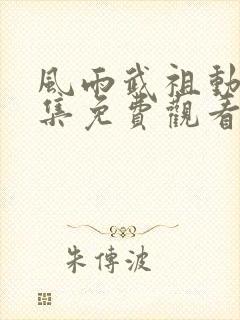 風雨武祖動
集免費觀看
朱傳波